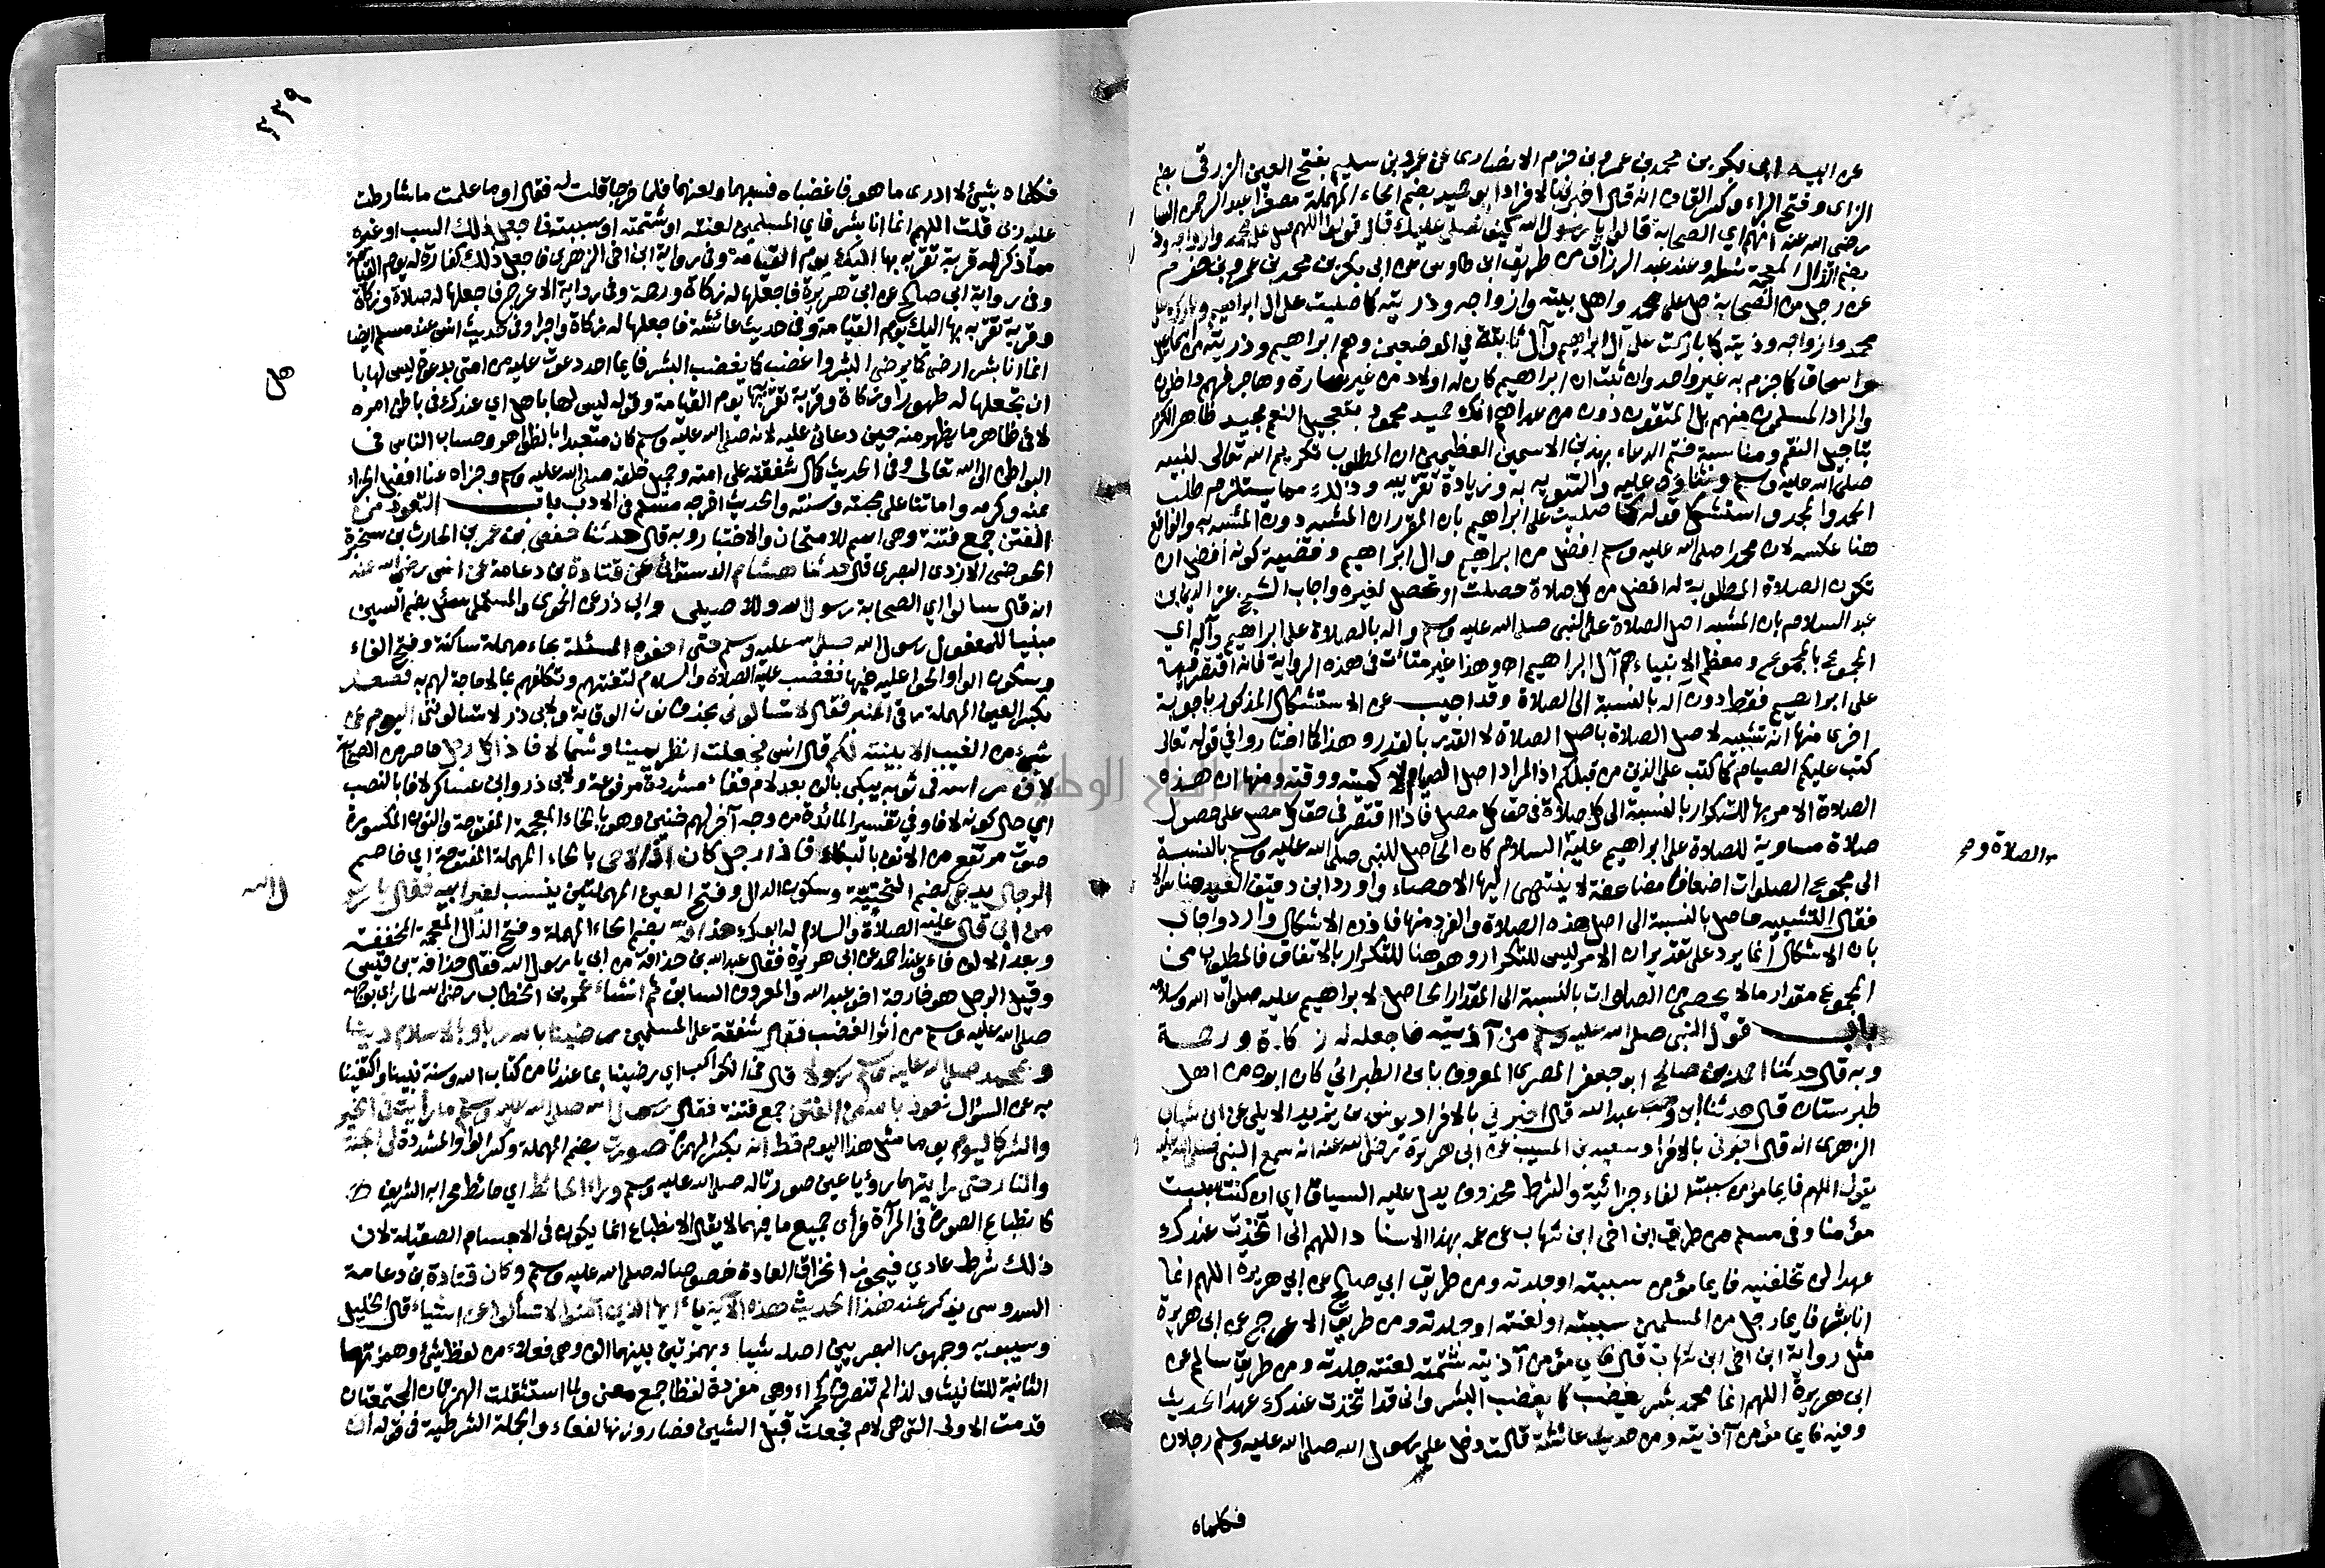 عن ابيه ابي بكر بن محمد بن عمرو بن حزم الانصاري عن عمرو بن سليم بفتح العين الزرقي بضم
الزاي وفتح الراء وكسر القاف انه قال اخبرني بالافراد ابو حميد بضم الحاء المهملة مصغرا عبد الرحمن
رضي الله عنه انهم اي الصحابة قالوا يا رسول الله كيف نصلي عليك قال قولوا اللهم صل على محمد وازواجه
بضم الذال المعجمة وعند عبد الرزاق من طريق ابن طاوس عن ابي بكر بن محمد بن عمرو بن حزم
عن رجل من الصحابة صل على محمد واهل بيته وازواجه وذريته كما صليت على ال ابراهيم وبارك على
محمد وازواجه وذريته كما باركت على آل ابراهيم وآل في الموضعين وهم ابراهيم وذريته من
واسحاق كما جزم به غير واحد وان ثبت ان ابراهيم كان له اولاد من غير سارة وهاجر فهم داخلون
والمراد المسلمون منهم بل المتقون دون من عداهم انك حميد محمود بتعجيل النعم مجيد ظاهر الكرم
بتاجيل النقم ومناسبة ختم الدعاء بهذين الاسمين العظيمين ان المطلوب تكريم الله تعالى لنبيه
صلى الله عليه وسلم وثناؤه عليه والتنويه به وزيادة تقريبه وذلك مما يستلزم طلب
الحمد والمجد واستشكل قوله كما صليت على ابراهيم بان المقرر ان المشبه دون المشبه به والواقع
هنا عكسه لان محمدا صلى الله عليه وسلم افضل من ابراهيم وال ابراهيم وقضية كونه افضل ان
تكون الصلاة المطلوبة له افضل من كل صلاة حصلت او تحصل لغيره واجاب الشيخ عز الدين بن
عبد السلام بان المشبه اصل الصلاة على النبي صلى الله عليه وسلم واله بالصلاة على ابراهيم وآله اي
المجموع بالمجموع ومعظم الانبياء هم آل ابراهيم اه وهذا غير متأت في هذه الرواية فانه اقتصر فيها
على ابراهيم فقط دون آله بالنسبة الى الصلاة وقد اجيب عن الاستشكال المذكور باجوبة
اخرى منها انه تشبيه لاصل الصلاة باصل الصلاة لا القدر بالقدر وهذا كما اختاروا في قوله تعالى
كتب عليكم الصيام كما كتب على الذين من قبلكم اذ المراد اصل الصيام لا كميته ووقته ومنها ان هذه
الصلاة الامر بها للتكرار بالنسبة الى كل صلاة في حق كل مصل فاذا اقتصر في حق كل مصل على حصول
صلاة مساوية للصلاة على ابراهيم عليه السلام كان الحاصل للنبي صلى الله عليه وسلم بالنسبة
الى مجموع الصلوات اضعافا مضاعفة لا ينتهي اليها الاحصاء واورد ابن دقيق العيد هنا
فقال التشبيه حاصل بالنسبة الى اصل هذه الصلاة والفرد منها فاذن الاشكال وارد واجاب
بان الاشكال انما يرد على تقدير ان الامر ليس للتكرار وهو هنا للتكرار بالاتفاق فالمطلوب من
المجموع مقدار ما لا يحصى من الصلوات بالنسبة الى المقدار الحاصل لابراهيم عليه صلوات الله وسلامه
باب قول النبي صلى الله عليه وسلم من آذيته فاجعله له زكاة ورحمة
وبه قال حدثنا احمد بن صالح ابو جعفر المصري المعروف بابن الطبراني كان ابوه من اهل
طبرستان قال حدثنا ابن وهب عبد الله قال اخبرني بالافراد يونس بن يزيد الايلي عن ابن شهاب
الزهري انه قال اخبرني بالافراد سعيد بن المسيب عن ابي هريرة رضي الله عنه انه سمع النبي صلى الله عليه
يقول اللهم فايما مؤمن سببته الفاء جزائية والشرط محذوف يدل عليه السياق اي ان كنت سببت
مؤمنا وفي مسلم من طريق ابن اخي ابن شهاب عن عمه بهذا الاسناد اللهم اني اتخذت عندك
عهدا لن تخلفنيه فايما مؤمن سببته او جلدته ومن طريق ابي صالح عن ابي هريرة اللهم انما
انا بشر فايما رجل من المسلمين سببته او لعنته او جلدته ومن طريق الاعرج عن ابي هريرة
مثل رواية ابن اخي ابن شهاب قال فاي مؤمن آذيته شتمته لعنته جلدته ومن طريق سالم عن
ابي هريرة اللهم انما محمد بشر يغضب كما يغضب البشر واني قد اتخذت عندك عهدا الحديث
وفيه فايما مؤمن آذيته ومن حديث عائشة قالت دخل على رسول الله صلى الله عليه وسلم رجلان
فكلماه
والصلاة صح
٣٣٩
فكلماه بشيئ لا ادري ما هو فاغضباه فسبهما ولعنهما فلما خرجا قلت له فقال او ما علمت ما شارطت
عليه ربي قلت اللهم انما انا بشر فاي المسلمين لعنته او شتمته او سببته فاجعل ذلك السب او غيره
مما ذكر له قربة تقربه بها اليك يوم القيامة وفي رواية ابن اخي الزهري فاجعل ذلك كفارة له يوم القيامة
وفي رواية ابي صالح عن ابي هريرة فاجعلها له زكاة ورحمة وفي رواية الاعرج فاجعلها له صلاة وزكاة
وقربة تقربه بها اليك يوم القيامة وفي حديث عائشة فاجعلها له زكاة واجرا وفي حديث انس عند مسلم ايضا
انما انا بشر ارضى كما يرضى البشر واغضب كما يغضب البشر فايما احد دعوت عليه من امتي بدعوة ليس لها با
هل
ان تجعلها له طهورا وزكاة وقربة تقربه بها يوم القيامة وقوله ليس لها باهل اي عندك في باطن امره
لا في ظاهر ما يظهر منه حين دعائي عليه لانه صلى الله عليه وسلم كان متعبدا بالظواهر وحساب الناس في
البواطن الى الله تعالى وفي الحديث كمال شفقته على امته وجميل خلقه صلى الله عليه وسلم وجزاه عنا افضل الجزاء
بمنه وكرمه واماتنا على محبته وسنته والحديث اخرجه مسلم في الادب باب التعوذ من
الفتن جمع فتنة وهي اسم للامتحان والاختبار وبه قال حدثنا حفص بن عمر بن الحارث بن سخبرة
الحوضي الازدي البصري قال حدثنا هشام الدستوائي عن قتادة بن دعامة عن انس رضي الله عنه
انه قال سالوا اي الصحابة رسول الله وللاصيلي وابي ذر عن الحموي والمستملي سئل بضم السين
مبنيا للمفعول رسول الله صلى الله عليه وسلم حتى احفوه المسئلة بحاء مهملة ساكنة وفتح الفاء
وسكون الواو الحوا عليه فيها فغضب عليه الصلاة والسلام لتعنتهم وتكلفهم بما لا حاجة لهم به فصعد
بكسر العين المهملة رقى المنبر فقال لا تسالوني بحذف نون الوقاية ولابي ذر لا تسالونني اليوم عن
شيئ من الغيب الا بينته لكم قال انس فجعلت انظر يمينا وشمالا فاذا كل رجل حاضر من الصحابة
لاف راسه في ثوبه يبكي بالف بعد لام ففاء مشددة مرفوعة ولابي ذر وابن عساكر لافا بالنصب
اي حال كونه لافا وفي تفسير المائدة من وجه آخر لهم خنين وهو بالخاء المعجمة المفتوحة والنون المكسورة
صوت مرتفع من الانف بالبكاء فاذا رجل كان اذا لاحى بالحاء المهملة المفتوحة اي خاصم
الرجال يدعى بضم التحتية وسكون الدال وفتح العين المهملتين ينسب لغير ابيه فقال يا رسو
ل الله
من ابي قال عليه الصلاة والسلام له ابوك حذافة بضم الحاء المهملة وفتح الذال المعجمة المخففة
وبعد الالف فاء وعند احمد عن ابي هريرة فقال عبد الله بن حذافة من ابي يا رسول الله فقال حذافة بن قيس
وقيل الرجل هو خارجة اخو عبد الله والمعروف السابق ثم انشاء عمر بن الخطاب رضي الله لما راى بوجهه
صلى الله عليه وسلم من اثر الغضب فقال شفقة على المسلمين رضينا بالله ربا وبالاسلام دينا
وبمحمد صلى الله عليه وسلم رسولا قال في الكواكب اي رضينا بما عندنا من كتاب الله وسنة نبينا واكتفينا
به عن السؤال نعوذ بالله من الفتن جمع فتنة فقال رسول الله صلى الله عليه وسلم ما رأيت في الخير
والشر كاليوم يوما مثل هذا اليوم قط انه بكسر الهمزة صورت بضم المهملة وكسر الواو المشددة لي الجنة
والنار حتى رايتهما رؤيا عين صورتا له صلى الله عليه وسلم وراء الحائط اي حائط محرابه الشريف
كانطباع الصورة في المرآة فرأى جميع ما فيهما لا يقال الانطباع انما يكون في الاجسام الصقيلة لان
ذلك شرط عادي فيجوز انخراق العادة خصوصا له صلى الله عليه وسلم وكان قتادة بن دعامة
السدوسي يذكر عند هذا الحديث هذه الآية يا ايها الذين آمنوا لا تسألوا عن اشياء قال الخليل
وسيبويه وجمهور البصريين اصله شيئاء بهمزتين بينهما الف وهي فعلاء من لفظ شيئ وهمزتها
الثانية للتانيث ولذا لم تنصرف كحمراء وهي مفردة لفظا جمع معنى ولما استثقلت الهمزتان المجتمعتان
قدمت الاولى التي هي لام فجعلت قبل الشين فصار وزنها لفعاء والجملة الشرطية في قوله ان